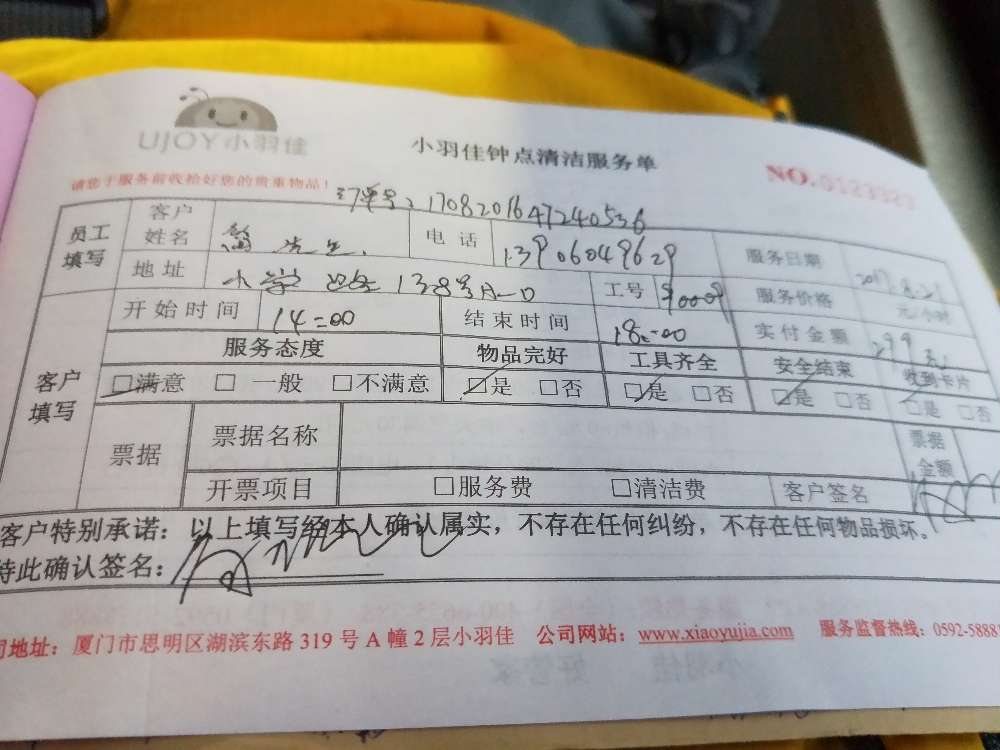 UJOY小羽佳
小羽佳钟点清洁服务单
NO.0123323
请您于服务前收拾好您的贵重物品!
订单号:1708201647240536
员工填写 客户姓名 先生 电话 13906049629 服务日期 2017.8.21
地址 小学路138号 工号 90009 服务价格 元/小时
客户填写 开始时间 14:00 结束时间 18:00 实付金额 299元
服务态度 物品完好 工具齐全 安全结束 收到卡片
□满意 □一般 □不满意 □是 □否 □是 □否 □是 □否 □是 □否
票据 票据名称 票据金额
开票项目 □服务费 □清洁费 客户签名
客户特别承诺:以上填写经本人确认属实,不存在任何纠纷,不存在任何物品损坏。
特此确认签名:
司地址:厦门市思明区湖滨东路319号A幢2层小羽佳 公司网站:www.xiaoyujia.com 服务监督热线:0592-5888